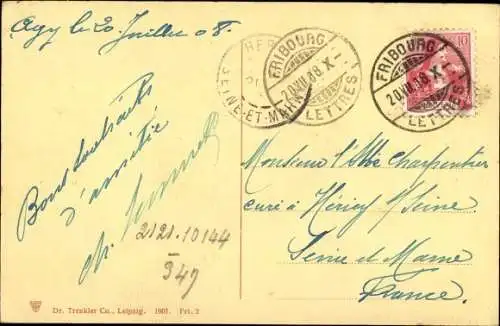 Agy le 20 Juillet 08.
Bons souhaits
d'amitié
2121.10144
349
HER
SEINE-ET-MARNE
FRIBOURG
20.VII.08 X-
LETTRES
FRIBOURG
20.VII.08 X-
LETTRES
10
Monsieur l'Abbé Charpentier
curé à Héricy s/Seine
Seine et Marne
France.
Dr. Trenkler Co., Leipzig. 1901. Fri. 2